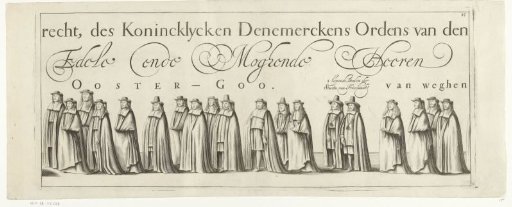 recht, des Konincklycken Denemerckens Ordens van den
Edele ende Mogende Heeren
OOSTER - GOO.
van weghen